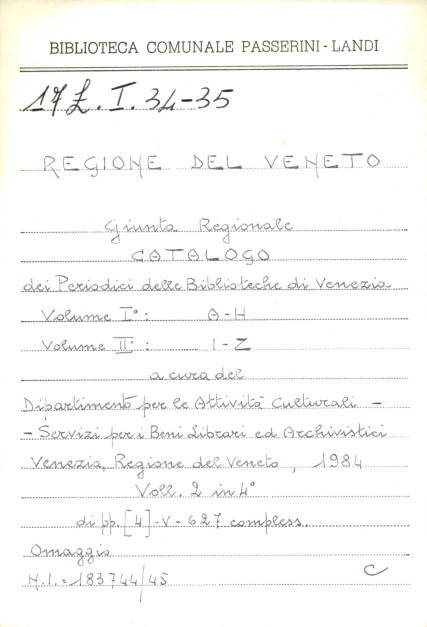 BIBLIOTECA COMUNALE PASSERINI - LANDI
17 Z. I. 34-35
REGIONE DEL VENETO
Giunta Regionale
CATALOGO
dei Periodici delle Biblioteche di Venezia
Volume I°: A-H
Volume II°: I-Z
a cura del
Dipartimento per le Attività Culturali -
- Servizi per i Beni Librari ed Archivistici
Venezia, Regione del Veneto, 1984
Voll. 2 in 4°
di pp. [4]-V-627 compless.
Omaggio
N.I.=183744/45 C